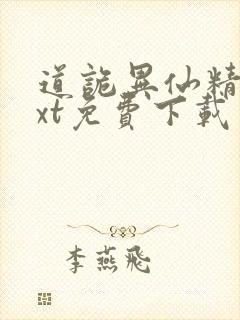 道詭異仙精
xt免費下載
李燕飛